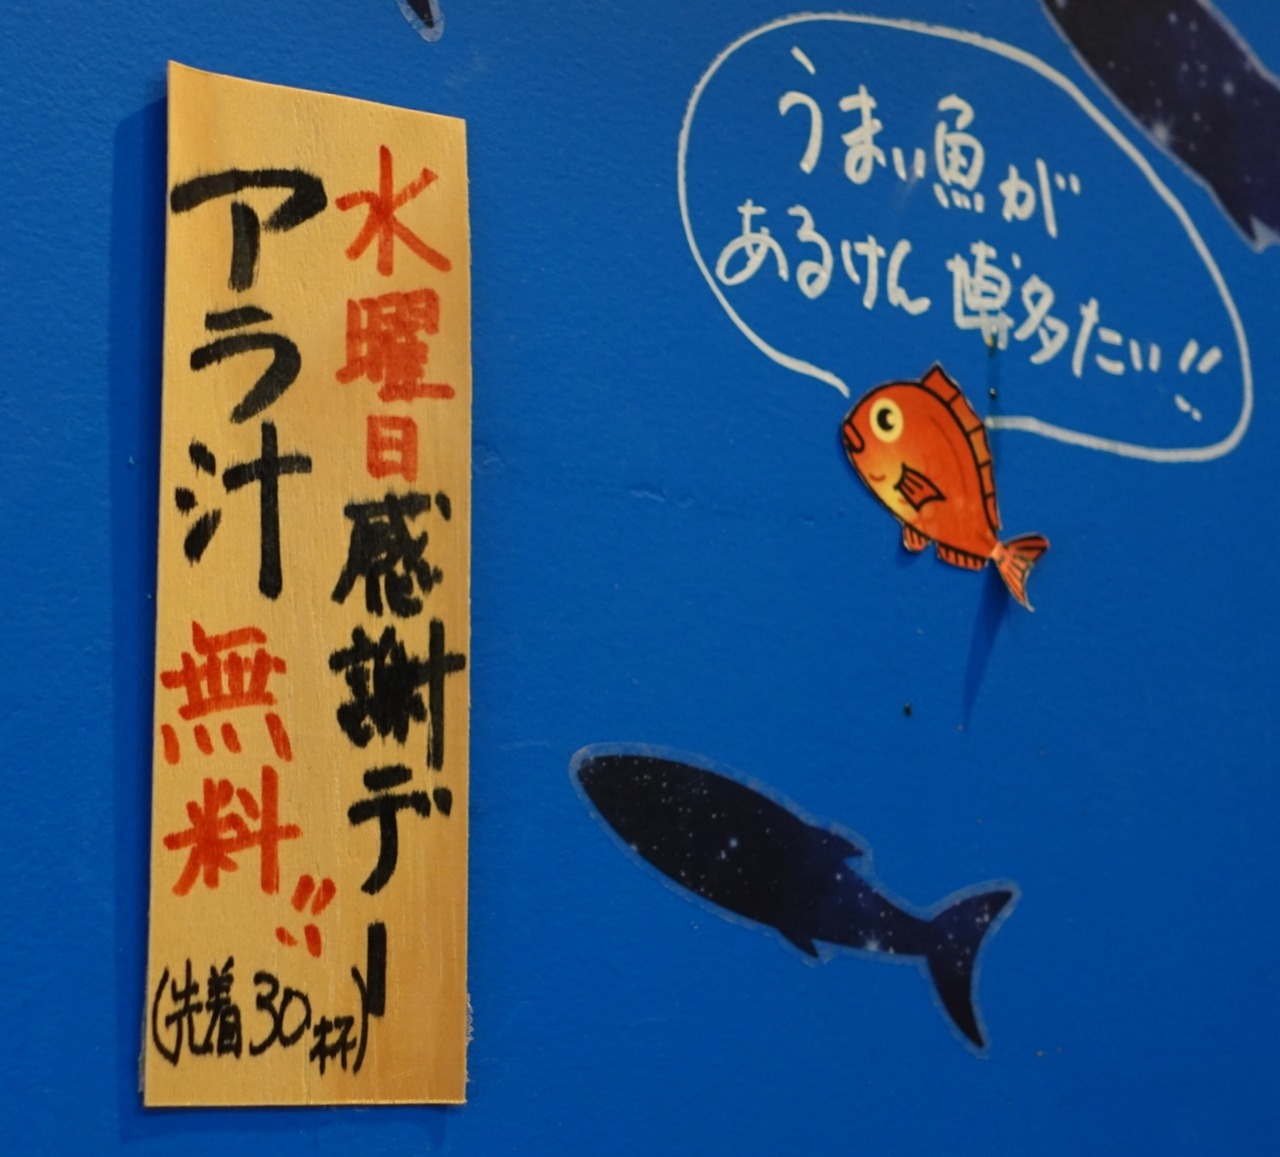 水曜日感謝デー
アラ汁 無料!!
(先着30杯)
うまい魚が
あるけん博多たい!!